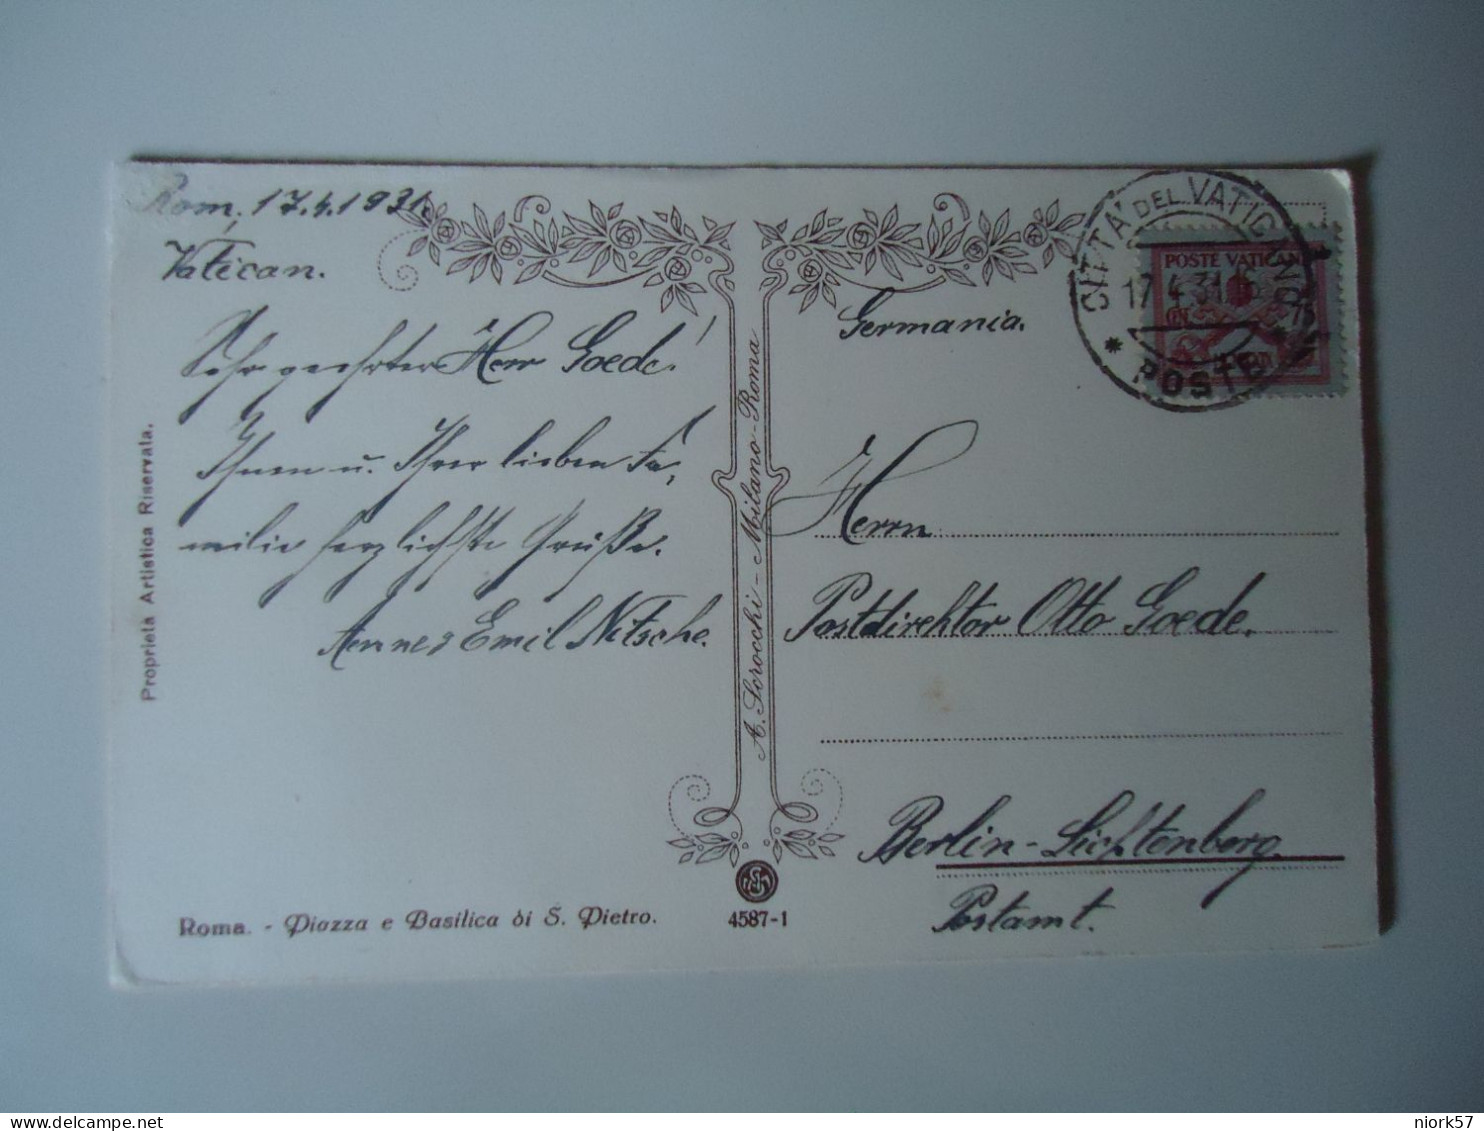 Rom, 17.4.1931.
Vatican.
Sehr geehrter Herr Goede!
Ihnen u. Ihrer lieben Fa,
milie herzlichste Grüße.
Emil Nitsche.
Proprietà Artistica Riservata.
Roma. - Piazza e Basilica di S. Pietro.
A. Scrocchi - Milano-Roma
4587-1
CITTÀ DEL VATICANO
17.4.31.
* POSTE
POSTE VATICANE
75
Germania.
Herrn
Postdirektor Otto Goede.
Berlin-Lichtenberg.
Postamt.
niork57